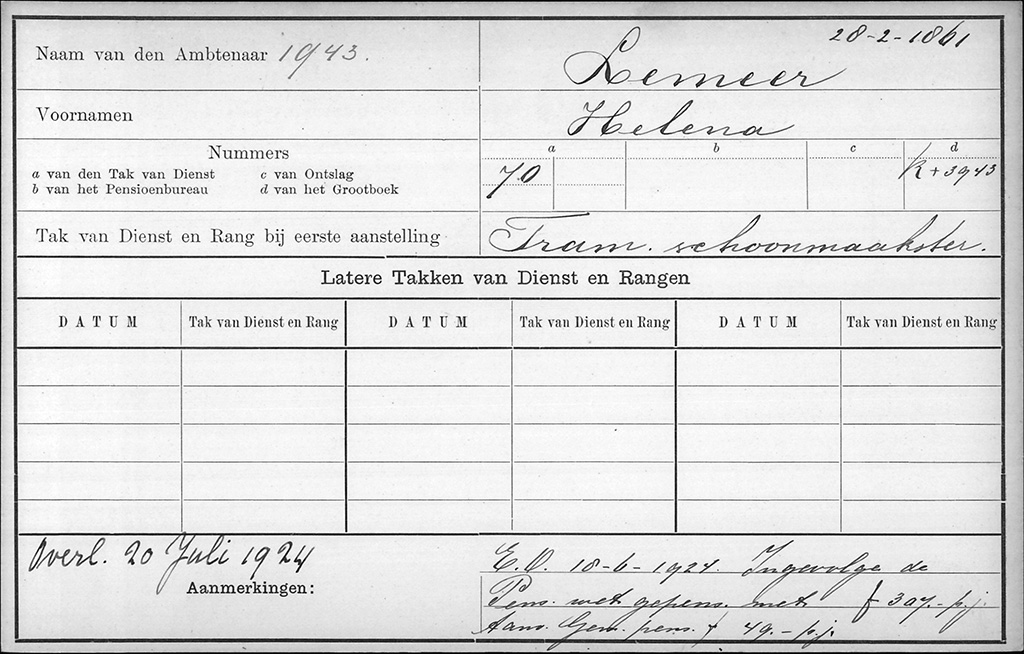 28-2-1861
Naam van den Ambtenaar 1943. Lemeer
Voornamen Helena
Nummers
a van den Tak van Dienst c van Ontslag
b van het Pensioenbureau d van het Grootboek
a b c d
70 K+3943
Tak van Dienst en Rang bij eerste aanstelling Tram. schoonmaakster.
Latere Takken van Dienst en Rangen
DATUM Tak van Dienst en Rang DATUM Tak van Dienst en Rang DATUM Tak van Dienst en Rang
Overl. 20 Juli 1924
Aanmerkingen:
E.O. 18-6-1924. Ingevolge de
Pens. wet gepens. met f 397.- p.j.
Aanv. Gem. pens. f 49.- p.j.